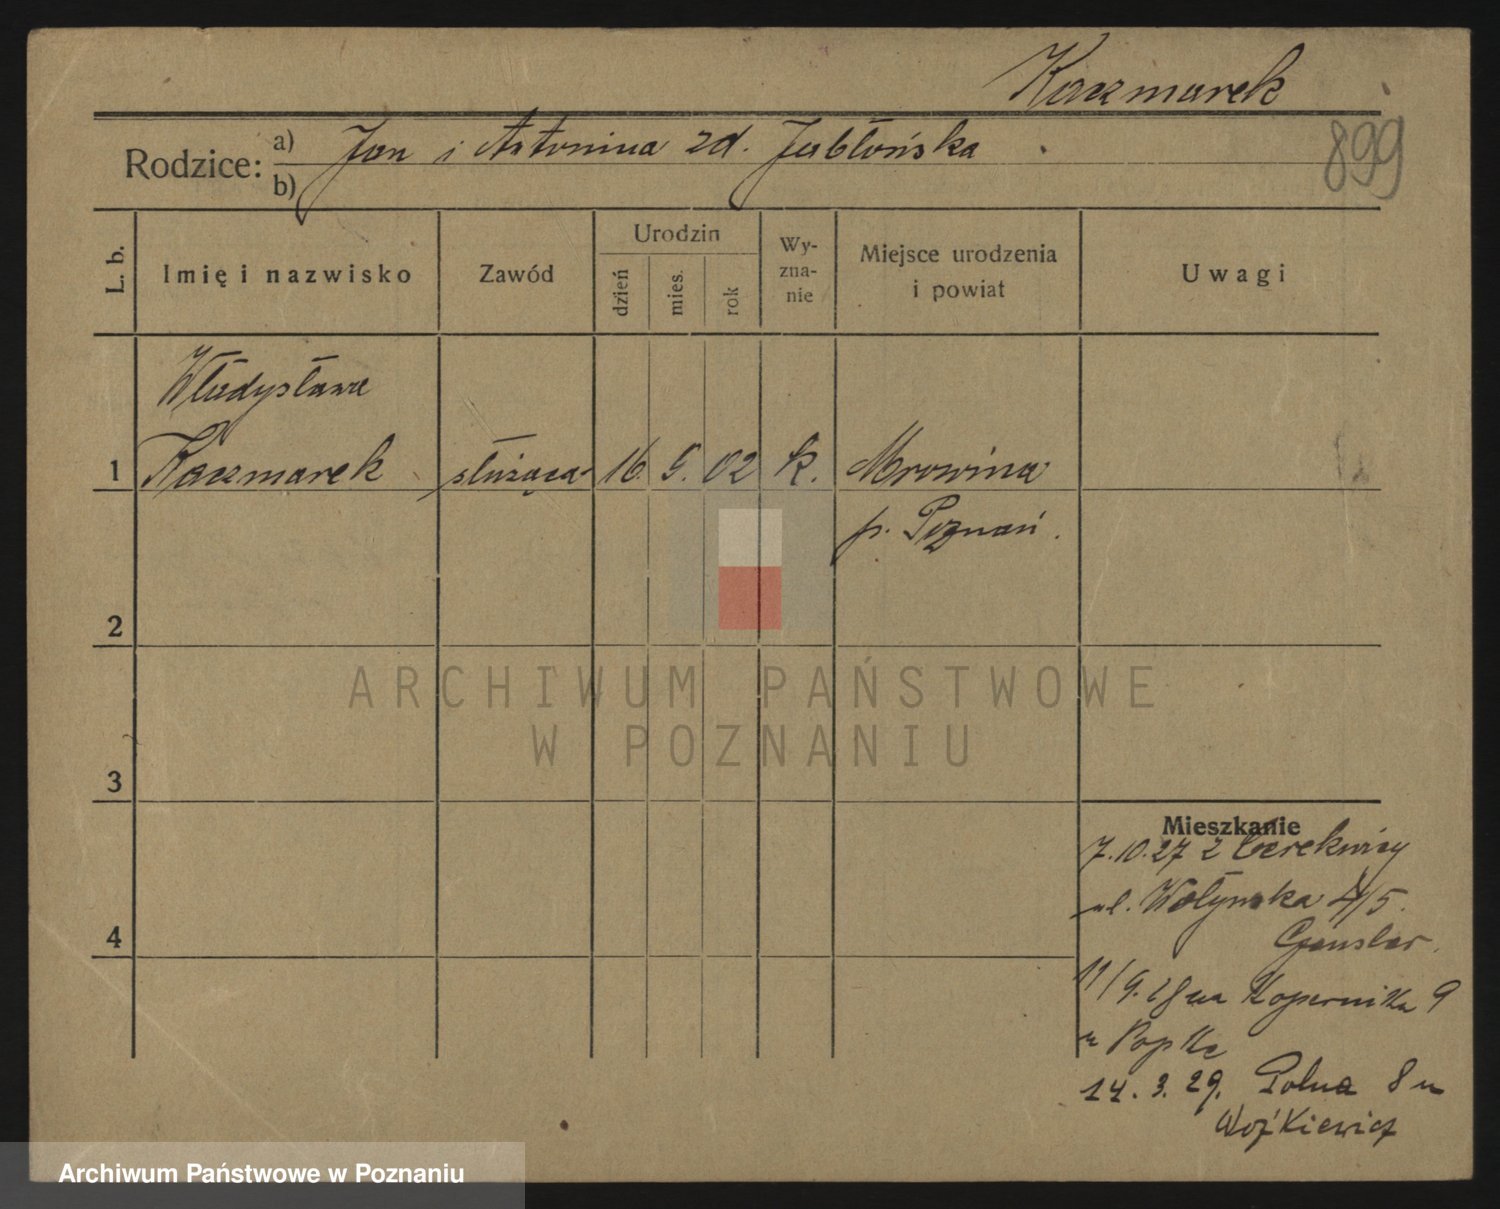 Kaczmarek
Rodzice: a) Jan i Antonina zd. Jabłońska
b)
899
L. b.
Imię i nazwisko
Zawód
Urodzin
dzień
mies.
rok
Wy-
zna-
nie
Miejsce urodzenia
i powiat
Uwagi
Władysława
1 Kaczmarek służąca 16. 5. 02 k. Mrowina
p. Poznań.
2
3
4
ARCHIWUM PAŃSTWOWE
W POZNANIU
Mieszkanie
7.10.27 z Cerekwicy
ul. Wołyńska 4/5.
11/9.28 na Kopernika 9
u
14. 3. 29. Polna 8 u
Wojkiewicz
Archiwum Państwowe w Poznaniu